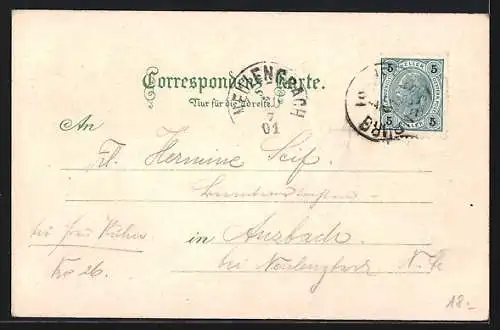 Correspondenz-Karte.
Nur für die Adresse.
NEULENGBACH
7
01
5 5
5 5
BURG
An
Frl. Hermine Seif.
bei Frau
No 26.
in Anzbach
bei Neulengbach N. Ö.
18.-